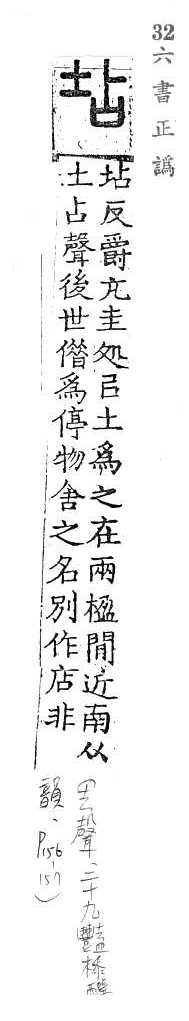 32
六書正譌
坫
坫反爵亢圭処㠯土爲之在兩楹間近南从
土占聲後世僭爲停物舍之名別作店非
(去聲、二十九豔㮇釅
韻、P156-157)